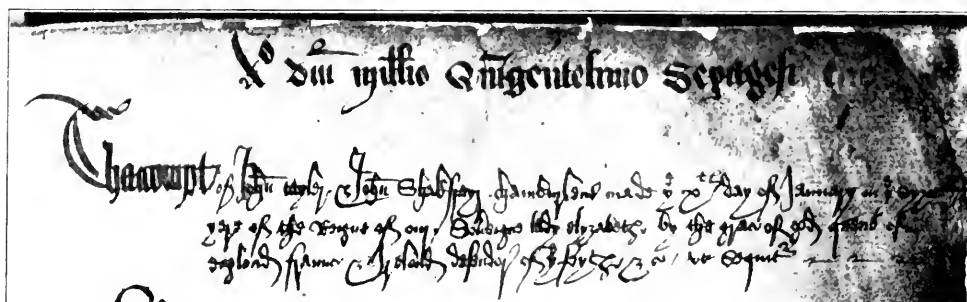 Ao dni millio Qūigentesimo Septages
Thaccompt of John tayler & John Shakspeyr chamburlens made ye xth day of January in ye
yere of the Reigne of our Sov'eigne lady elyzabeth, by the grace of god quene of
england fraunce & Ireland defendor of ye feythe, &c, ut Sequit'